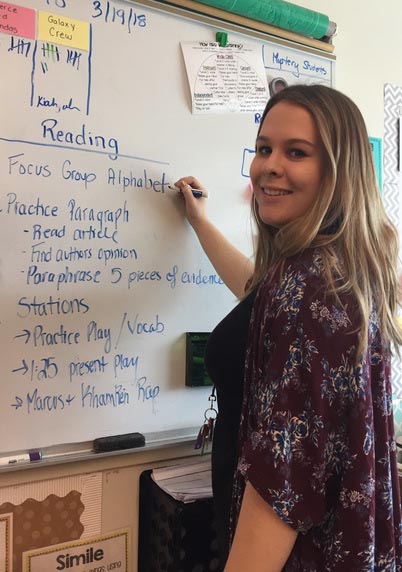 3/19/18
Galaxy
Crew
Mystery Students
Reading
Focus Group Alphabet
Practice Paragraph
- Read article
- Find authors opinion
- Paraphrase 5 pieces of evidence
Stations
→ Practice Play / Vocab
→ 1:25 present play
→ Marcus + Khamren Rap
Simile